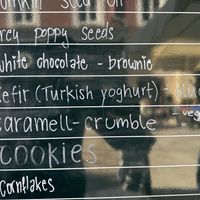 seed oil
rey poppy seeds
white chocolate - brownie
Kefir (Turkish yoghurt) - blue
caramell-crumble - veg
COOKIES
cornflakes